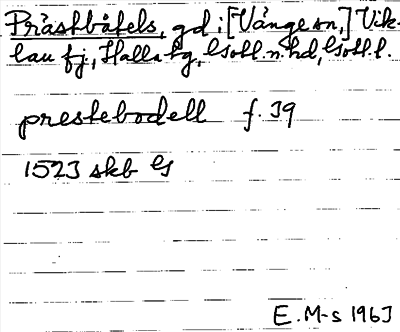 Prästbåtels, gd i [Vänge sn,] Vik-
lau fj, Halla tg, Gotl. n. hd, Gotl. l.
prestebodell f. 39
1523 skb Gs
E. M-s 1963